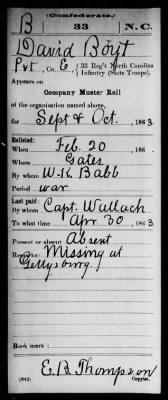 (Confederate.)
B 33 N.C.
David Boyt
Pvt, Co. E, 33 Reg't North Carolina
Infantry (State Troops).
Appears on
Company Muster Roll
of the organization named above,
for Sept & Oct, 1863
Enlisted:
When Feb. 20, 186 .
Where Gates
By whom W.H. Babb
Period war
Last paid:
By whom Capt. Wallach
To what time Apr. 30, 1863
Present or absent Absent
Remarks: Missing at
Gettysburg.
Book mark:
E.B. Thompson
(642) Copyist.